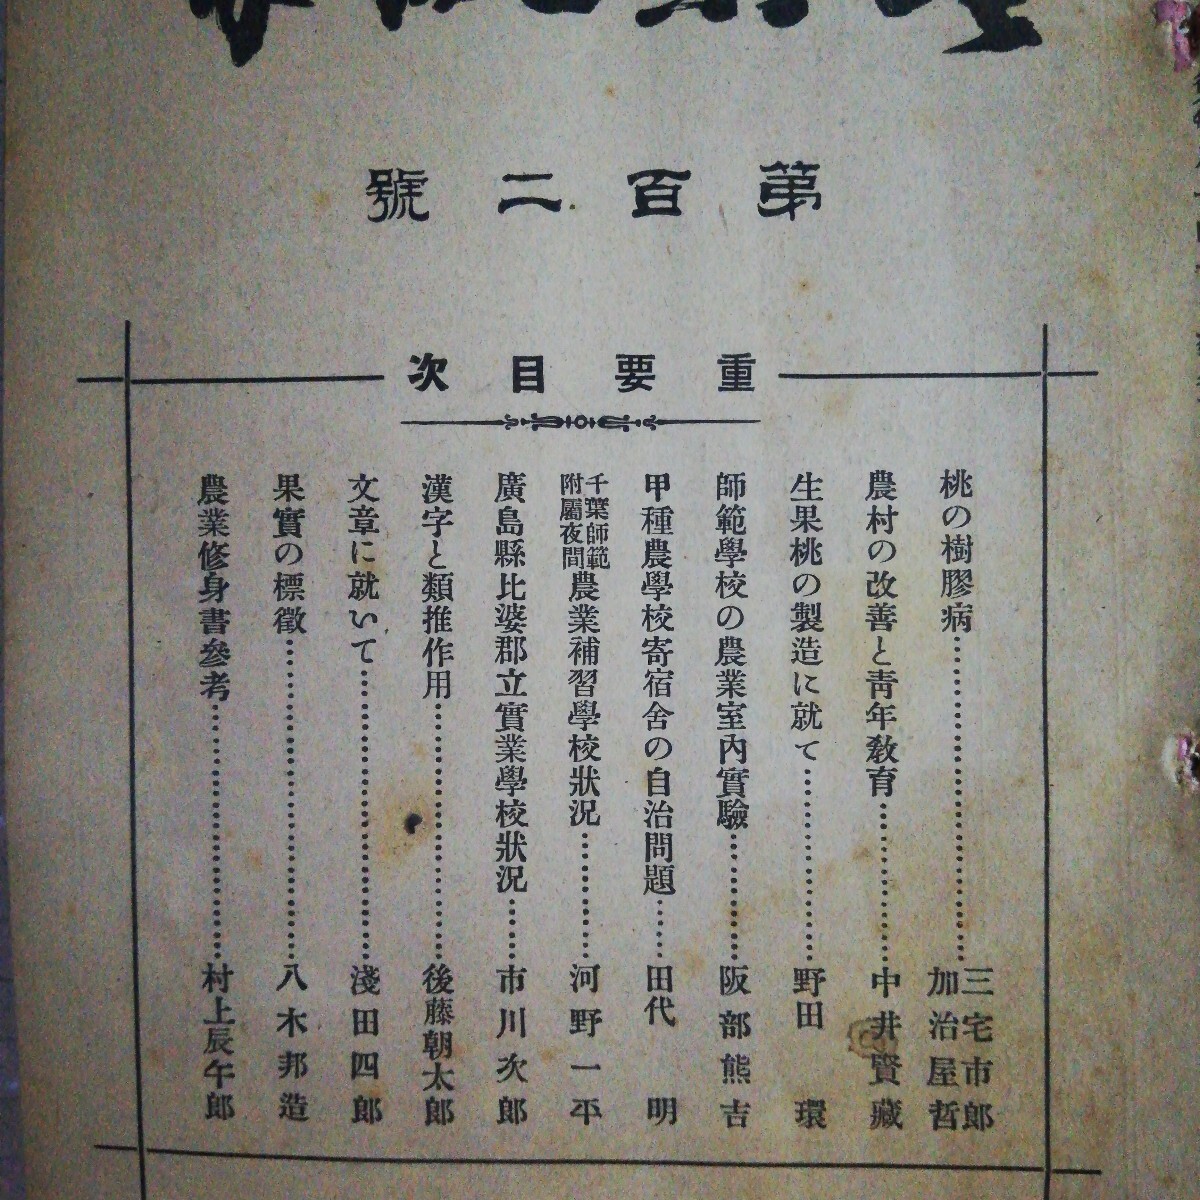 第百二號
重要目次
桃の樹膠病……………………三宅市郎 加治屋哲
農村の改善と靑年敎育……………中井賢藏
生果桃の製造に就て………………野田環
師範學校の農業室內實驗…………阪部熊吉
甲種農學校寄宿舍の自治問題……田代明
千葉師範附屬夜間農業補習學校狀況…………河野一平
廣島縣比婆郡立實業學校狀況……市川次郎
漢字と類推作用……………………後藤朝太郎
文章に就いて………………………淺田四郎
果實の標徵…………………………八木邦造
農業修身書參考……………………村上辰午郎